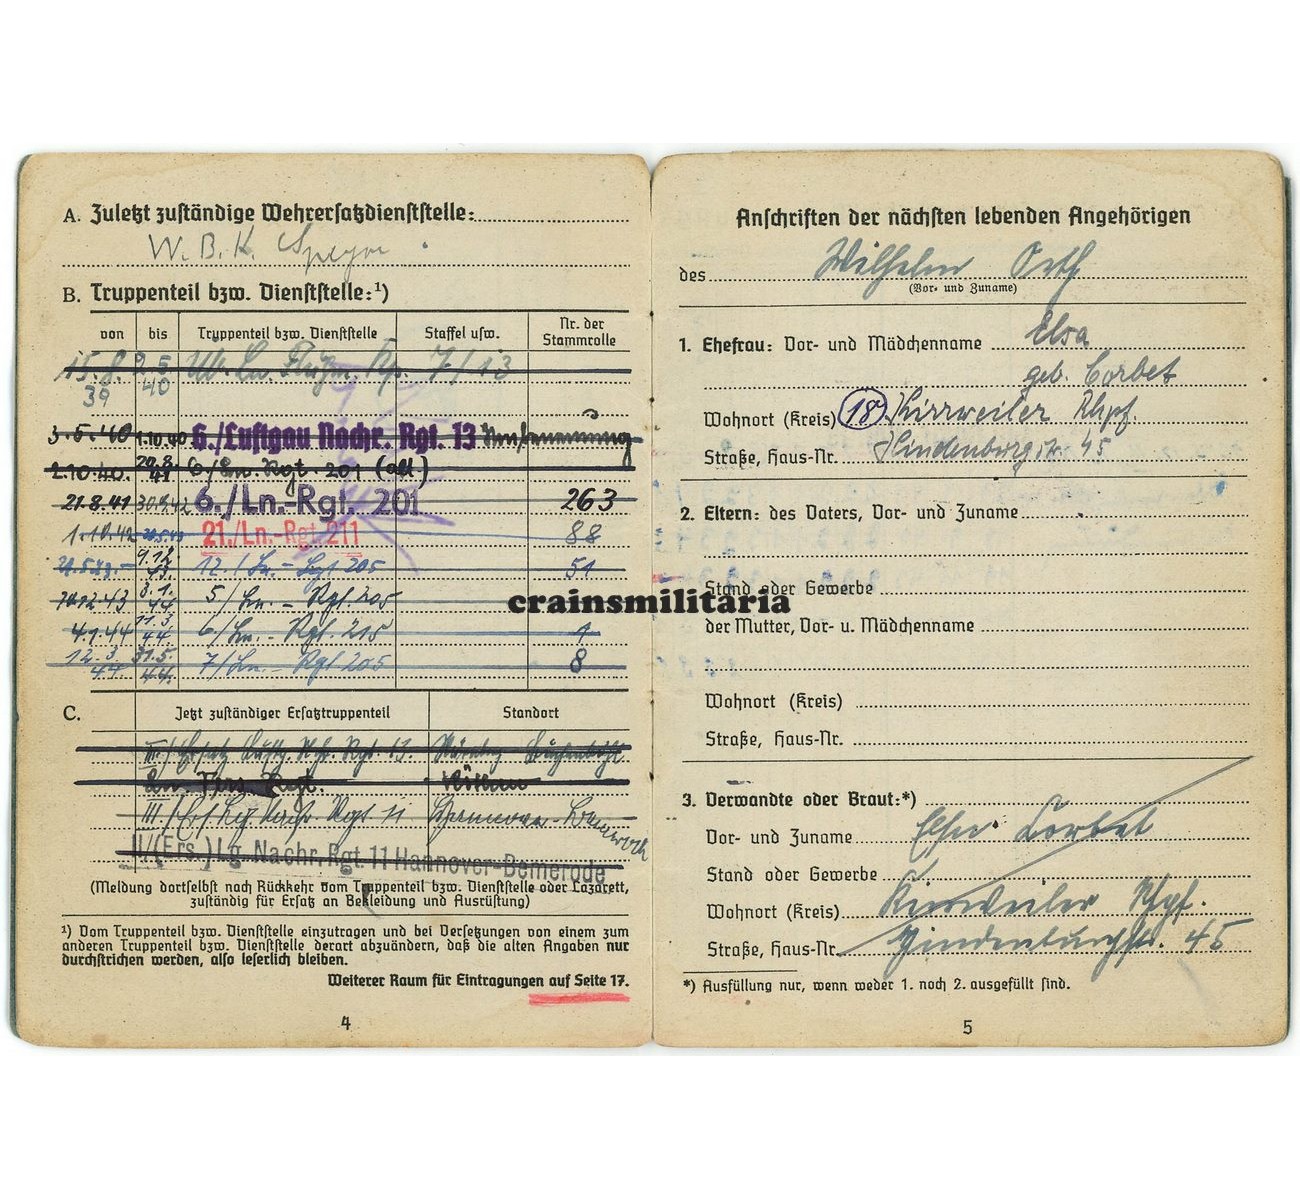 A. Zuletzt zuständige Wehrersatzdienststelle:
W. B. K. Speyer
B. Truppenteil bzw. Dienststelle:¹)
von bis Truppenteil bzw. Dienststelle Staffel usw. Nr. der Stammrolle
15. 8. 39 9.5 40 Kp. 7/13
3.5.40 1.10.40 6./Luftgau Nachr. Rgt. 13 Umbenennung
2.10.40. 20.8. 41 6/Ln. Rgt. 201
21.8.41 30.9.42 6./Ln.-Rgt. 201 263
1.10.42 21./Ln.-Rgt. 211 88
12./Ln.-Rgt 205 51
10.12.43 3.1. 44 5/Ln.-Rgt. 205
4.1.44 11.3. 44. 6/Ln.-Rgt. 215 1
12.3. 44. 31.5. 44. 7/Ln.-Rgt 205 8
C. Jetzt zuständiger Ersatztruppenteil Standort
III./ Rgt. 13.
Ln
III./ Rgt 11 Hannover-
II/(Ers.) Lg. Nachr. Rgt. 11 Hannover-Bemerode
(Meldung dortselbst nach Rückkehr vom Truppenteil bzw. Dienststelle oder Lazarett,
zuständig für Ersatz an Bekleidung und Ausrüstung)
¹) Vom Truppenteil bzw. Dienststelle einzutragen und bei Versetzungen von einem zum
anderen Truppenteil bzw. Dienststelle derart abzuändern, daß die alten Angaben nur
durchstrichen werden, also leserlich bleiben.
Weiterer Raum für Eintragungen auf Seite 17.
4
Anschriften der nächsten lebenden Angehörigen
des Wilhelm Orth
(Vor- und Zuname)
1. Ehefrau: Vor- und Mädchenname Elsa
geb. Corbet
Wohnort (Kreis) 18 Kirrweiler Rhpf.
Straße, Haus-Nr. Hindenburgstr. 45
2. Eltern: des Vaters, Vor- und Zuname
Stand oder Gewerbe
der Mutter, Vor- u. Mädchenname
Wohnort (Kreis)
Straße, Haus-Nr.
3. Verwandte oder Braut:*)
Vor- und Zuname Corbet
Stand oder Gewerbe
Wohnort (Kreis) Kirrweiler Rhpf.
Straße, Haus-Nr. Hindenburgstr. 45
*) Ausfüllung nur, wenn weder 1. noch 2. ausgefüllt sind.
5
crainsmilitaria